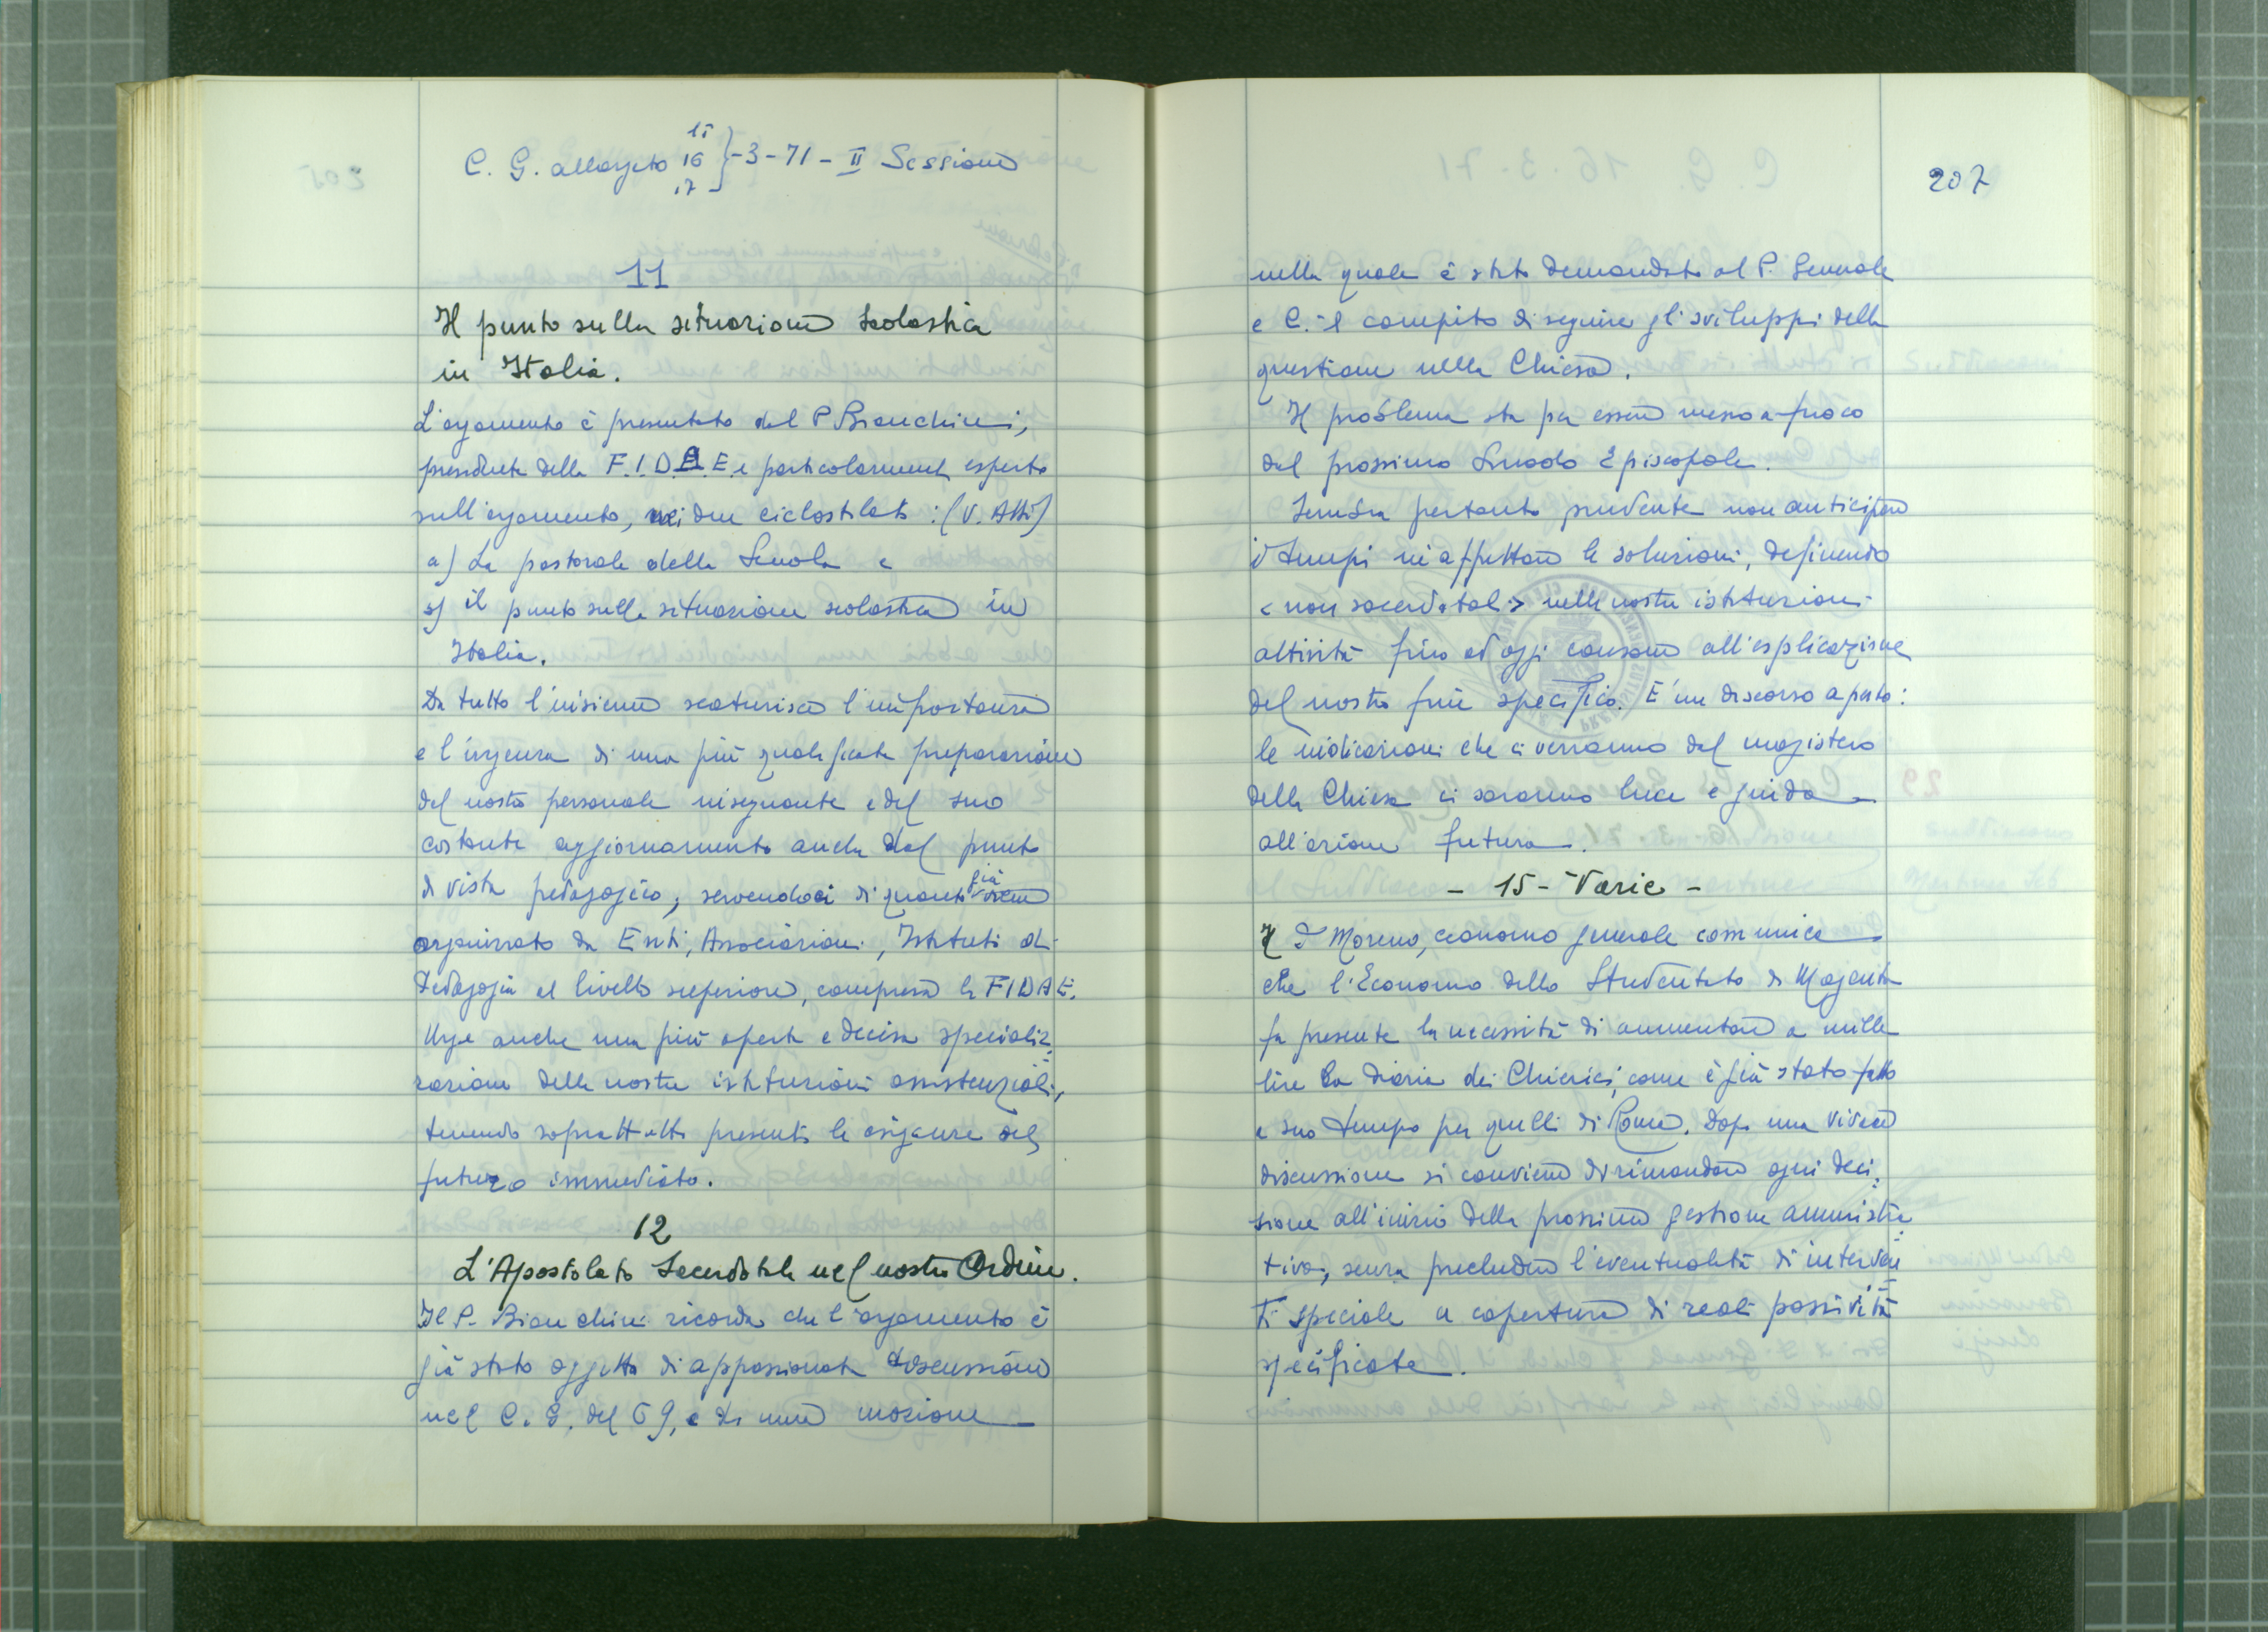 C. G. allargato 15 16 17 } -3-71 - II Sessione
11
Il punto sulla situazione scolastica
in Italia.
L'argomento è presentato dal P. Bianchini,
presidente della F.I.D.A.E. e particolarmente esperto
sull'argomento, nei due ciclostilati: (V. Atti)
a) La pastorale della Scuola e
b) il punto sulla situazione scolastica in
Italia.
Da tutto l'insieme scaturisce l'importanza
e l'urgenza di una più qualificata preparazione
del nostro personale insegnante e del suo
costante aggiornamento anche dal punto
di vista pedagogico, servendoci di quanto già viene
organizzato da Enti, Associazioni, Istituti di
Pedagogia a livello superiore, compresa la FIDAE.
Urge anche una più aperta e decisa specializ-
zazione delle nostre istituzioni assistenziali,
tenendo soprattutto presenti le esigenze del
futuro immediato.
12
L'Apostolato Sacerdotale nel nostro Ordine.
Il P. Bianchini ricorda che l'argomento è
già stato oggetto di appassionata discussione
nel C. G. del 69, e di una mozione
207
nella quale è stato demandato al P. Generale
e C. il compito di seguire gli sviluppi della
questione nella Chiesa.
Il problema sta per essere messo a fuoco
dal prossimo Sinodo Episcopale.
Sembra pertanto prudente non anticipare
i tempi né affrettare le soluzioni, definendo
< non sacerdotali > nelle nostre istituzioni
attività fino ad oggi consone all'esplicazione
del nostro fine specifico. È un discorso aperto:
le indicazioni che ci verranno dal magistero
della Chiesa ci saranno luce e guida
all'azione futura.
- 15 - Varie -
Il P. Moreno, economo generale comunica
che l'Economo dello Studentato di Magenta
fa presente la necessità di aumentare a mille
lire la diaria dei Chierici, come è già stato fatto
a suo tempo per quelli di Roma. Dopo una vivace
discussione si conviene di rimandare ogni deci-
sione all'inizio della prossima gestione amministra-
tiva, senza precludere l'eventualità di interven-
ti speciale a copertura di reali passività
specificate.